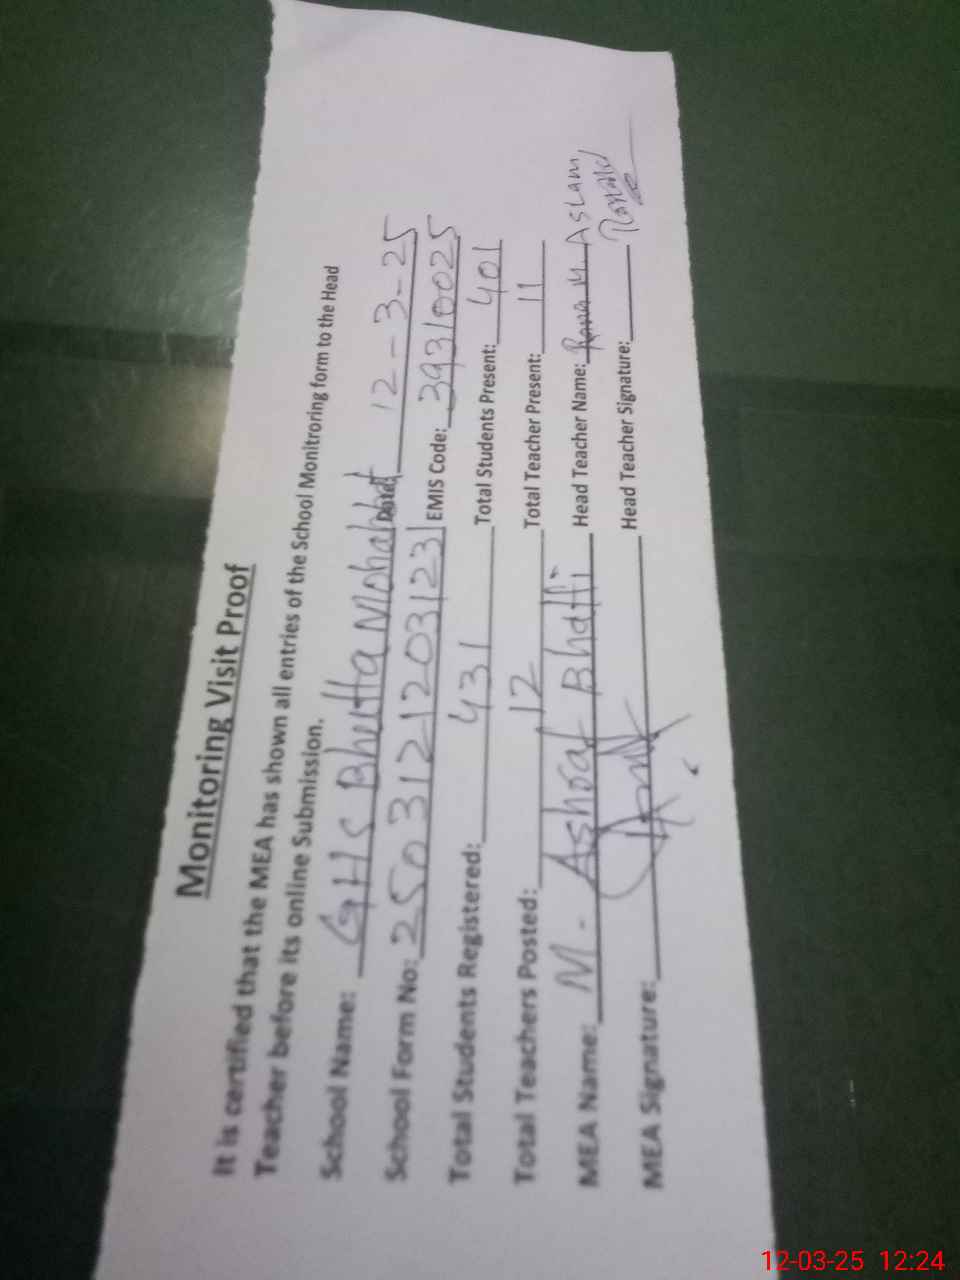 Monitoring Visit Proof
It is certified that the MEA has shown all entries of the School Monitroring form to the Head
Teacher before its online Submission.
School Name: GHS Bhutta Mohabbat Date: 12-3-25
School Form No: 2503121203123 EMIS Code: 39310025
Total Students Registered: 431 Total Students Present: 401
Total Teachers Posted: 12 Total Teacher Present: 11
MEA Name: M. Ashraf Bhatti Head Teacher Name: Rana M. Aslam
MEA Signature: Head Teacher Signature:
12-03-25 12:24